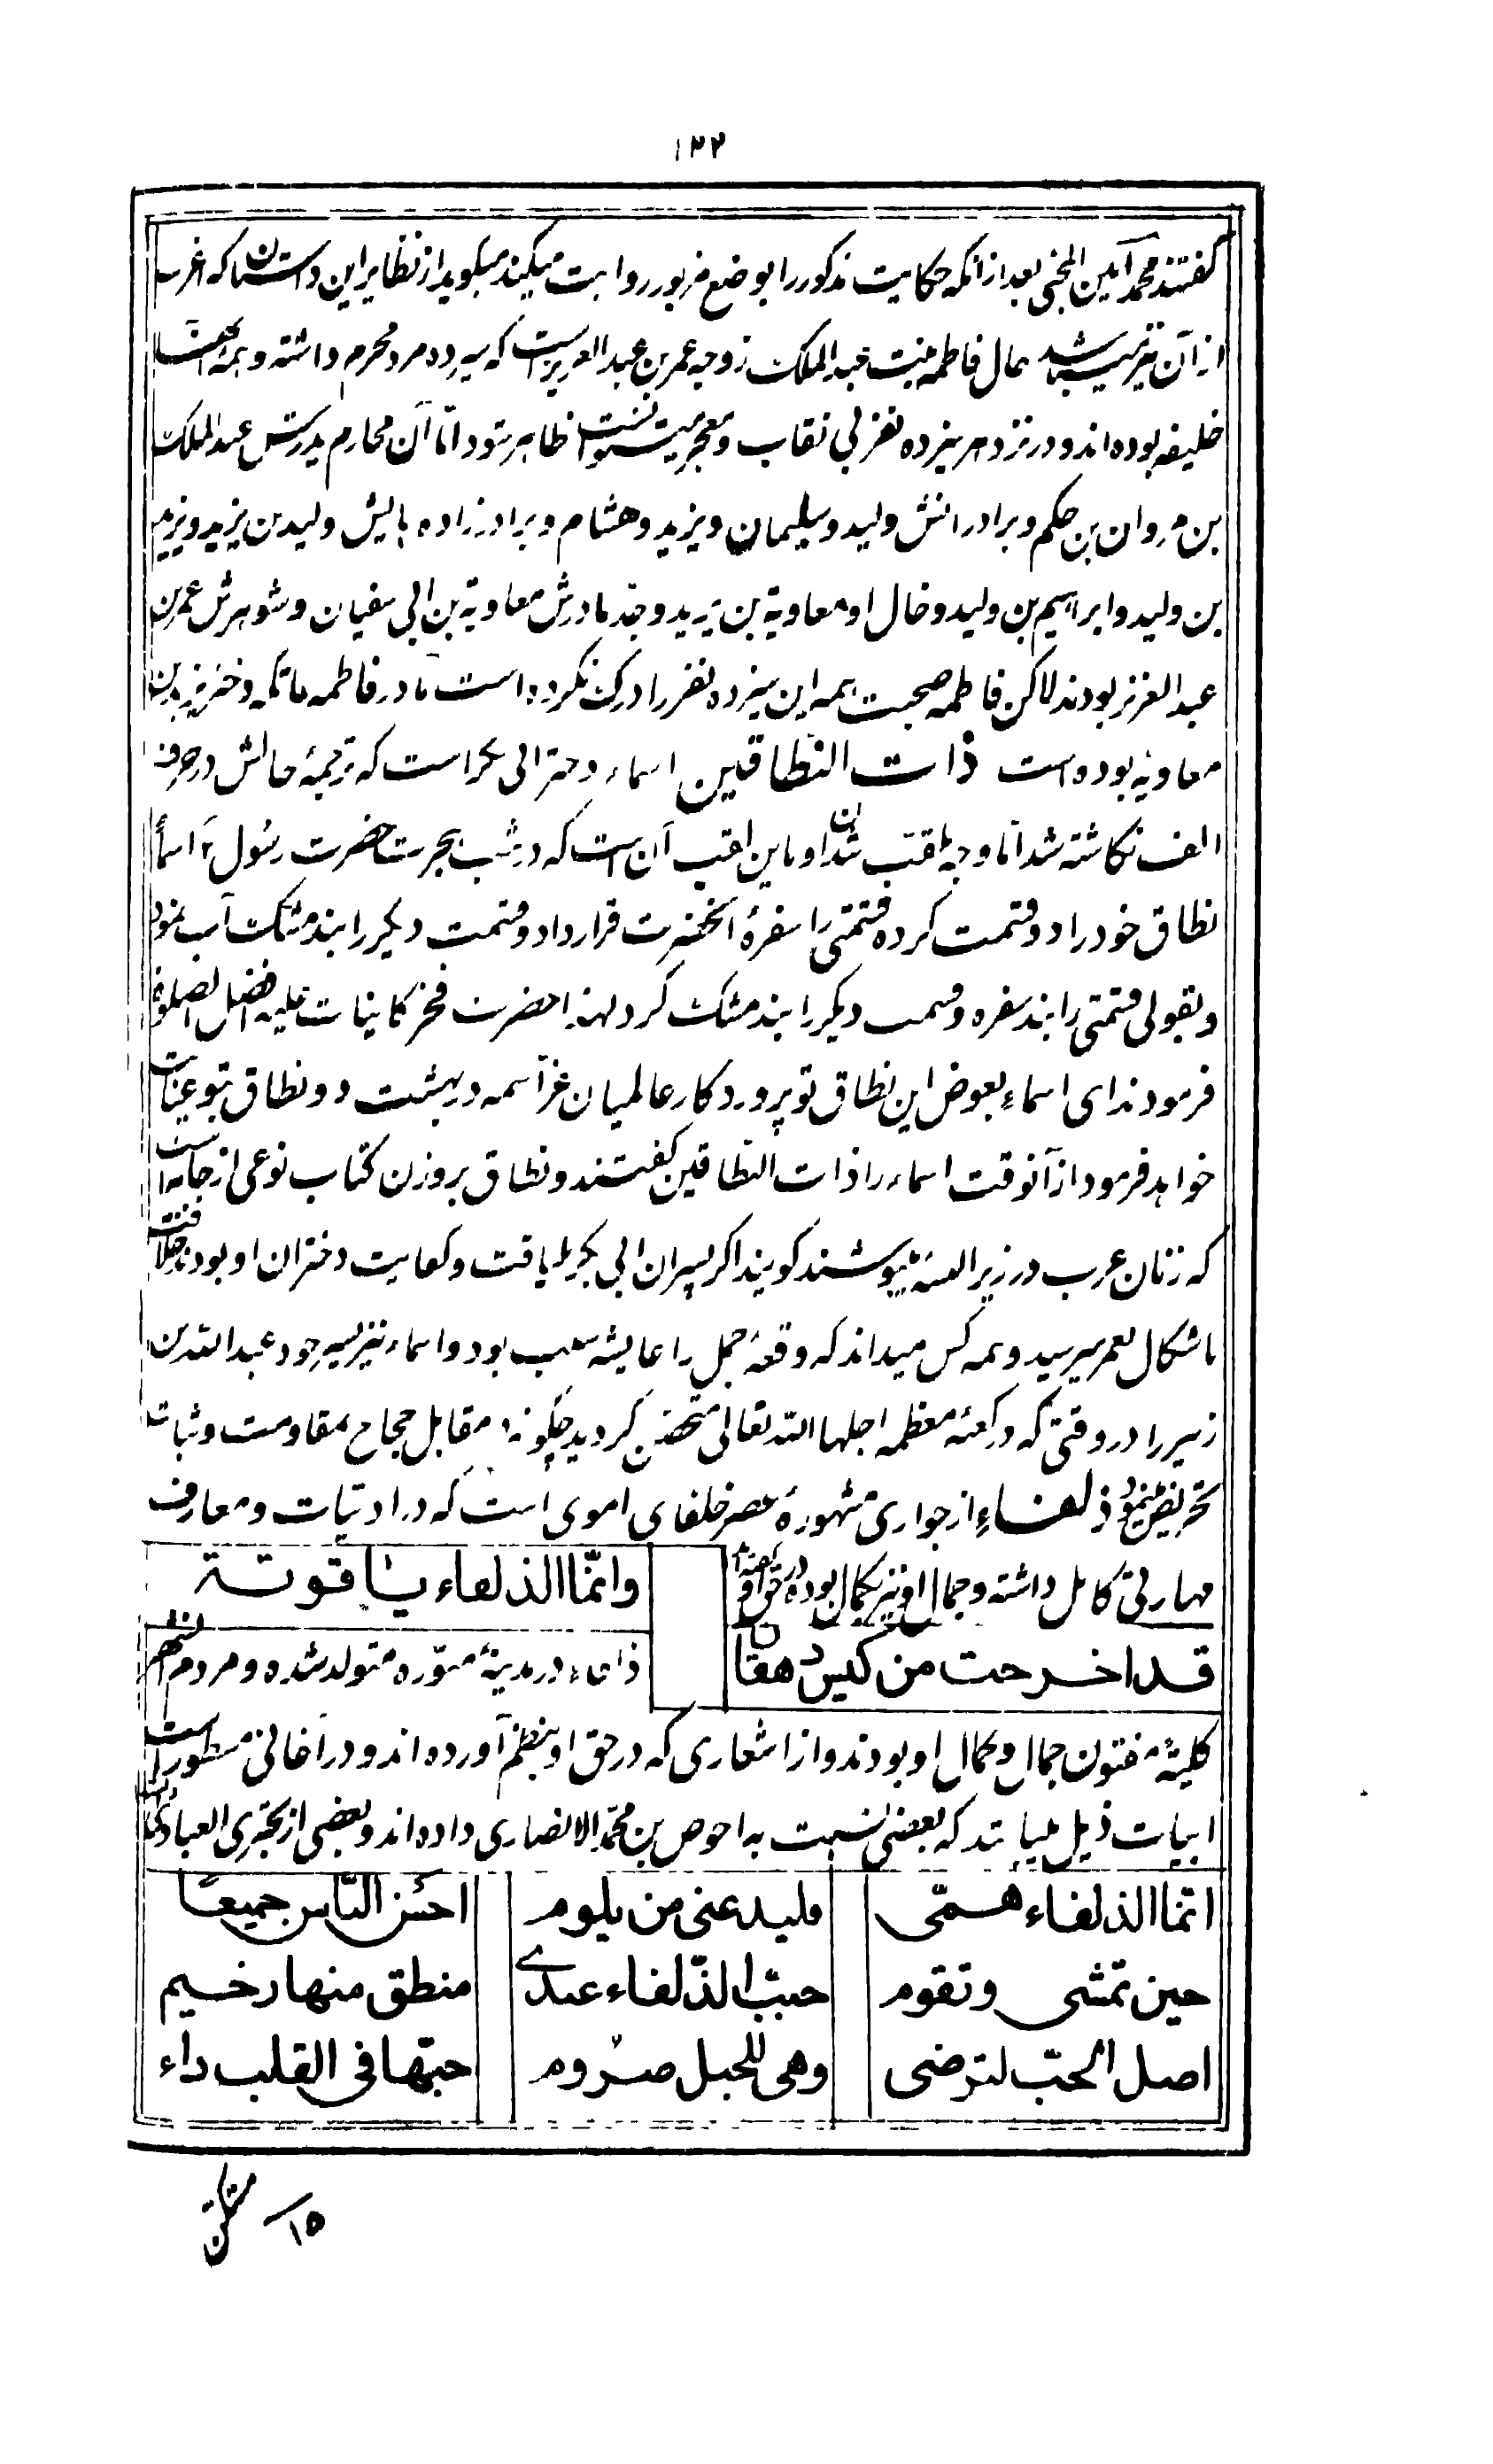 ۱۲۲
گفتند محمد امین المجنی بعد از آنکه حکایت مذکور را بوضع مزبور روایت میکند میگوید از نظایر این داستان که اغرب
از آن نیز میباشد حال فاطمه بنت عبد الملک زوجه عمر بن عبد العزیز است که سیزده مرد محرم داشته و همه آنها
خلیفه بوده‌اند و در نزد هر سیزده نفر بی نقاب و معجر میتوانست ظاهر شود اما آن محارم پدرش عبد الملک
بن مروان بن حکم و برادرانش ولید و سلیمان و یزید و هشام و برادرزاده هایش ولید بن یزید و یزید
بن ولید و ابراهیم بن ولید و خال او معاویة بن یزید و جد مادرش معاویة بن ابی سفیان و شوهرش عمر بن
عبد العزیز بودند لاکن فاطمه صحبت همه این سیزده نفر را درک نکرده است مادر فاطمه عاتکه دختر یزید بن
معاویه بوده است ذات النطاقین اسماء دختر ابی بکر است که ترجمۀ حالش در حرف
الف نگاشته شد اما وجه ملقب شدن او باین لقب آن است که در شب هجرت حضرت رسول اسماء
نطاق خود را دو قسمت کرده قسمتی را سفرۀ آنحضرت قرار داد و قسمت دیگر را بند مشک آب نمود
و بقولی قسمتی را بند سفره و قسمت دیگر را بند مشک کرد لهذا حضرت فخر کاینات علیه افضل الصلوة
فرمودند ای اسماء بعوض این نطاق تو پروردگار عالمیان عز اسمه در بهشت دو نطاق بتو عنایت
خواهد فرمود از آنوقت اسماء را ذات النطاقین گفتند و نطاق بر وزن کتاب نوعی از جامه است
که زنان عرب در زیر البسه میپوشند گویند اگر پسران ابی بکر لیاقت و کفایت دختران او بود خلافت
باشکال بعمر میرسید و همه کس میداند که وقعۀ جمل را عایشه سبب بود و اسماء نیز پسر خود عبد الله بن
زبیر را در وقتی که در کعبۀ معظمه اجلها الله تعالی متحصن گردید چگونه در مقابل حجاج بمقاومت و ثبات
تحریض مینمود ذلفاء از جواری مشهورۀ عصر خلفای اموی است که در ادبیات و معارف
مهارتی کامل داشته و جمال او نیز بکمال بوده در حق او گفته‌اند
وانّما الذلفاء یاقوتة
قد اخرجت من کیس دهقان
ذلفاء در مدینۀ منوّره متولد شده و مردم
کلیةً مفتون جمال و کمال او بودند و از اشعاری که در حق او بنظم آورده‌اند و در اغانی مسطور است
ابیات ذیل میباشد که بعضی نسبت به احوص بن محمد الانصاری داده‌اند و بعضی از بحتری العبادی
انّما الذلفاء همّی فلیدعنی من یلوم احسن النّاس جمیعا
حین تمشی وتقوم حبّب الذّلفاء عندی منطق منها رخیم
اصل الحبّ لترضی وهی للحبل صروم حبّها فی القلب داء
۱۵